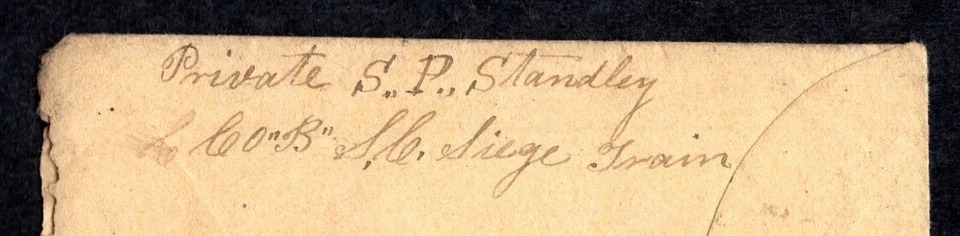 Private S,, P,, Standley
Co "B" S,C, Siege Train